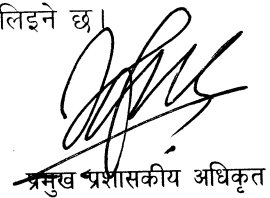 लिइने छ।
प्रमुख प्रशासकीय अधिकृत